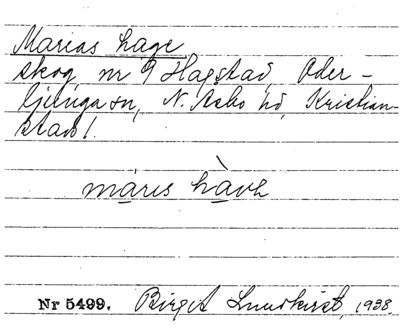 Marias hage
skog nr 9 Hagstad, Oder-
ljunga sn, N. Åsbo hd, Kristian-
stad l.
máris hàvh
Nr 5499. Birgit Lundkvist, 1938.